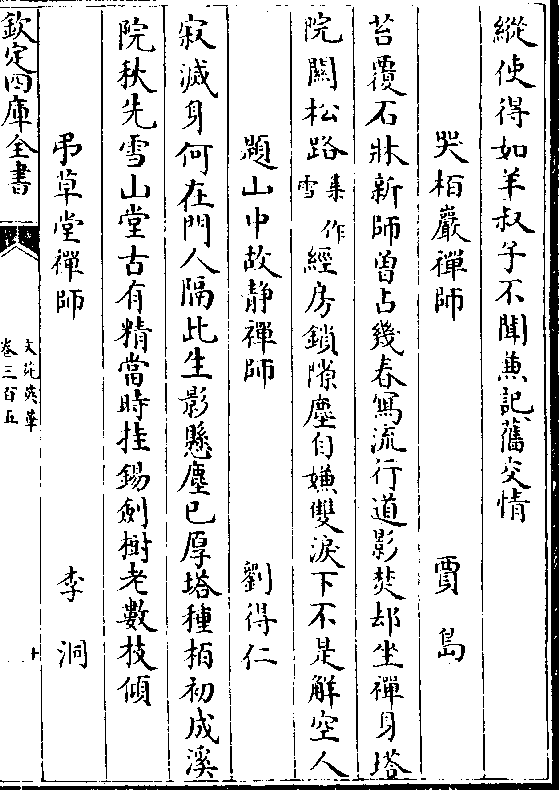 縱使得如羊叔子不聞兼記舊交情
哭栢巖禪師 賈島
苔覆石牀新師曾占幾春寫流行道影焚却坐禪身塔
院關松路集作雪經房鎖隙塵自嫌雙淚下不是解空人
題山中故静禪師 劉得仁
寂滅身何在門人隔此生影懸塵已厚塔種栢初成溪
院秋先雪山堂古有精當時挂錫劍樹老數枝傾
弔草堂禪師 李洞
欽定四庫全書
文苑英華
卷三百五
十